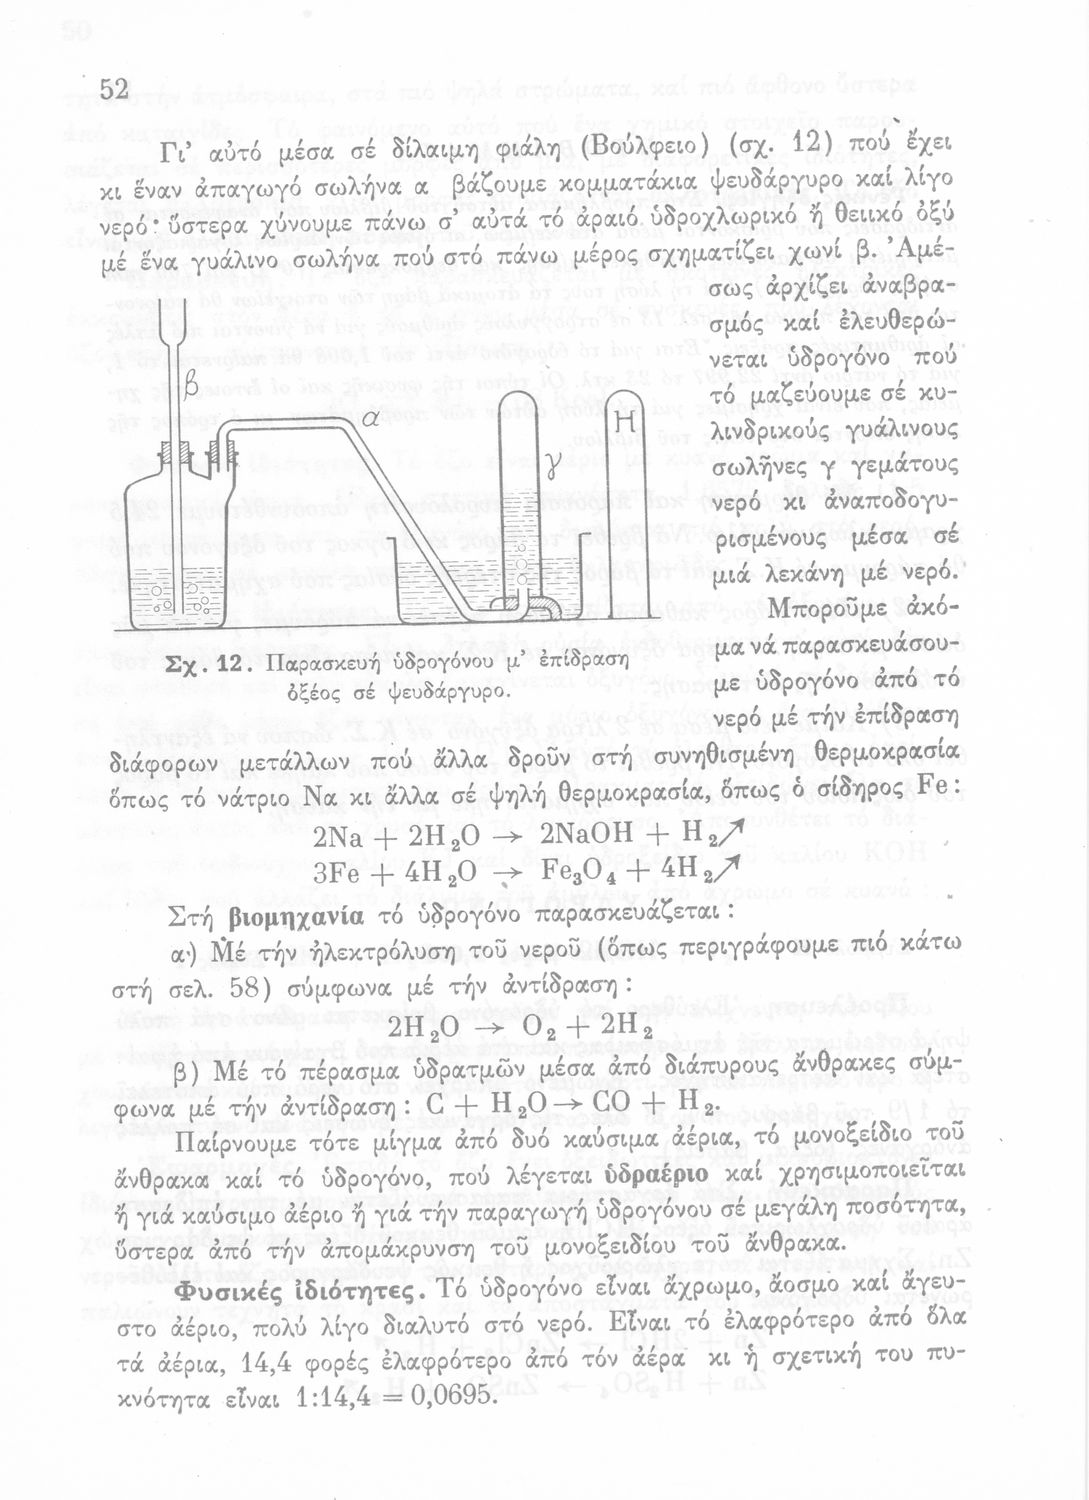 52
Γι' αὐτό μέσα σέ δίλαιμη φιάλη (Βούλφειο) (σχ. 12) πού ἔχει
κι ἕναν ἀπαγωγό σωλήνα α βάζουμε κομματάκια ψευδάργυρο καί λίγο
νερό· ὕστερα χύνουμε πάνω σ' αὐτά τό ἀραιό ὑδροχλωρικό ἤ θειικό ὀξύ
μέ ἕνα γυάλινο σωλήνα πού στό πάνω μέρος σχηματίζει χωνί β. Ἀμέ-
σως ἀρχίζει ἀναβρα-
σμός καί ἐλευθερώ-
νεται ὑδρογόνο πού
τό μαζεύουμε σέ κυ-
λινδρικούς γυάλινους
σωλῆνες γ γεμάτους
νερό κι ἀναποδογυ-
ρισμένους μέσα σέ
μιά λεκάνη μέ νερό.
Μποροῦμε ἀκό-
μα νά παρασκευάσου-
με ὑδρογόνο ἀπό τό
νερό μέ τήν ἐπίδραση
β
α
γ
H
Σχ. 12. Παρασκευή ὑδρογόνου μ' ἐπίδραση
ὀξέος σέ ψευδάργυρο.
διάφορων μετάλλων πού ἄλλα δροῦν στή συνηθισμένη θερμοκρασία
ὅπως τό νάτριο Na κι ἄλλα σέ ψηλή θερμοκρασία, ὅπως ὁ σίδηρος Fe :
2Na + 2H₂O → 2NaOH + H₂↗
3Fe + 4H₂O → Fe₃O₄ + 4H₂↗
Στή βιομηχανία τό ὑδρογόνο παρασκευάζεται :
α) Μέ τήν ἠλεκτρόλυση τοῦ νεροῦ (ὅπως περιγράφουμε πιό κάτω
στή σελ. 58) σύμφωνα μέ τήν ἀντίδραση :
2H₂O → O₂ + 2H₂
β) Μέ τό πέρασμα ὑδρατμῶν μέσα ἀπό διάπυρους ἄνθρακες σύμ-
φωνα μέ τήν ἀντίδραση : C + H₂O → CO + H₂.
Παίρνουμε τότε μίγμα ἀπό δυό καύσιμα ἀέρια, τό μονοξείδιο τοῦ
ἄνθρακα καί τό ὑδρογόνο, πού λέγεται ὑδραέριο καί χρησιμοποιεῖται
ἤ γιά καύσιμο ἀέριο ἤ γιά τήν παραγωγή ὑδρογόνου σέ μεγάλη ποσότητα,
ὕστερα ἀπό τήν ἀπομάκρυνση τοῦ μονοξειδίου τοῦ ἄνθρακα.
Φυσικές ἰδιότητες. Τό ὑδρογόνο εἶναι ἄχρωμο, ἄοσμο καί ἄγευ-
στο ἀέριο, πολύ λίγο διαλυτό στό νερό. Εἶναι τό ἐλαφρότερο ἀπό ὅλα
τά ἀέρια, 14,4 φορές ἐλαφρότερο ἀπό τόν ἀέρα κι ἡ σχετική του πυ-
κνότητα εἶναι 1:14,4 = 0,0695.